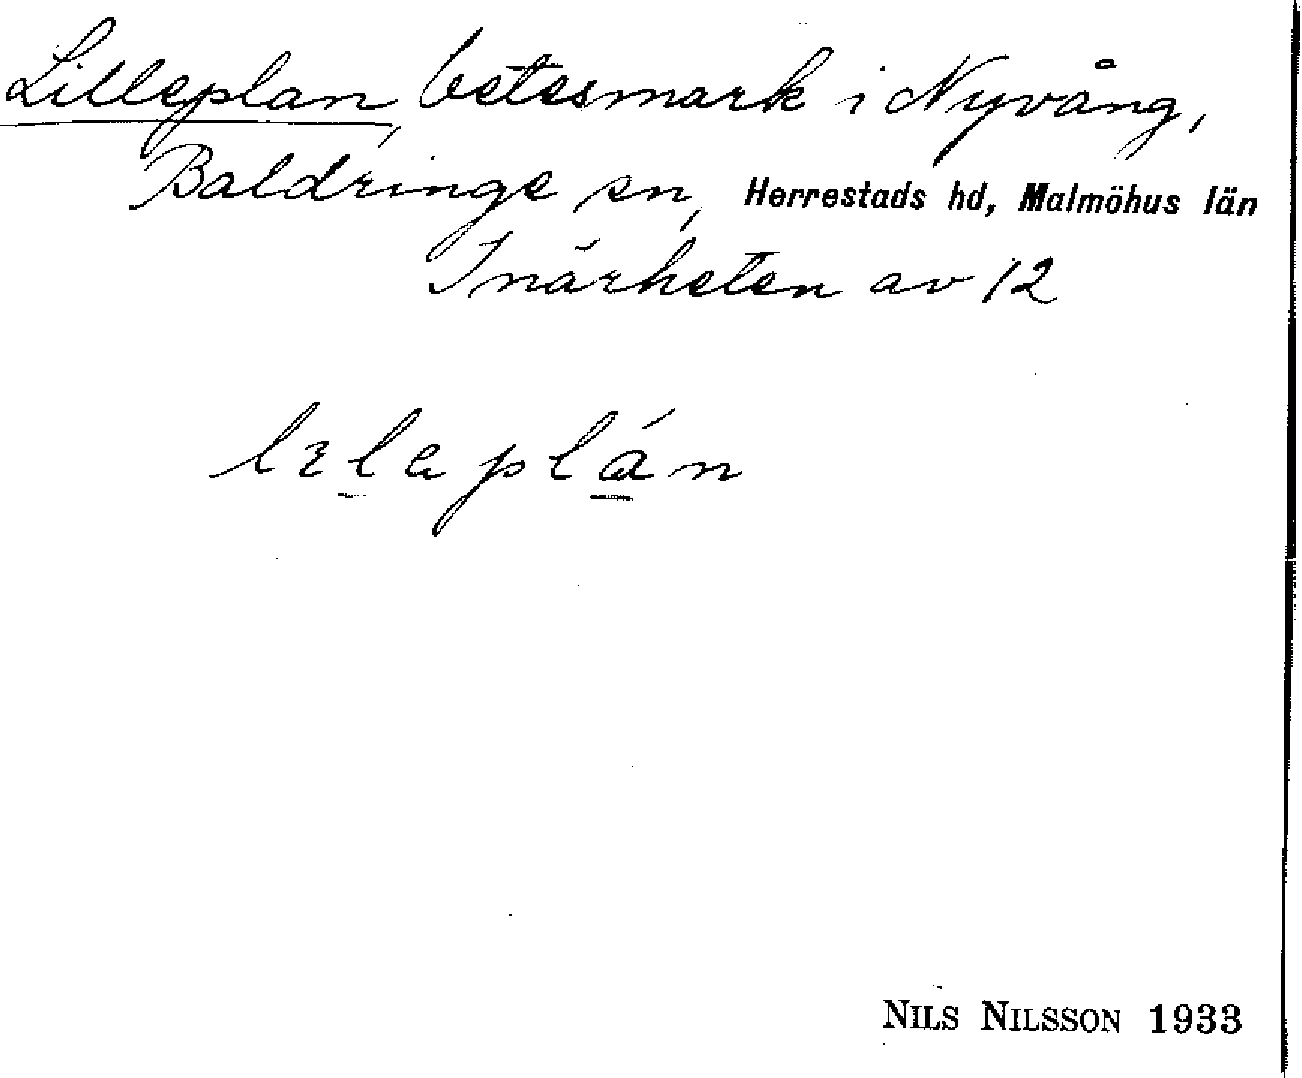 Lilleplan, betesmark i Nyvång,
Baldringe sn, Herrestads hd, Malmöhus län
I närheten av 12
lɛlaplán
NILS NILSSON 1933